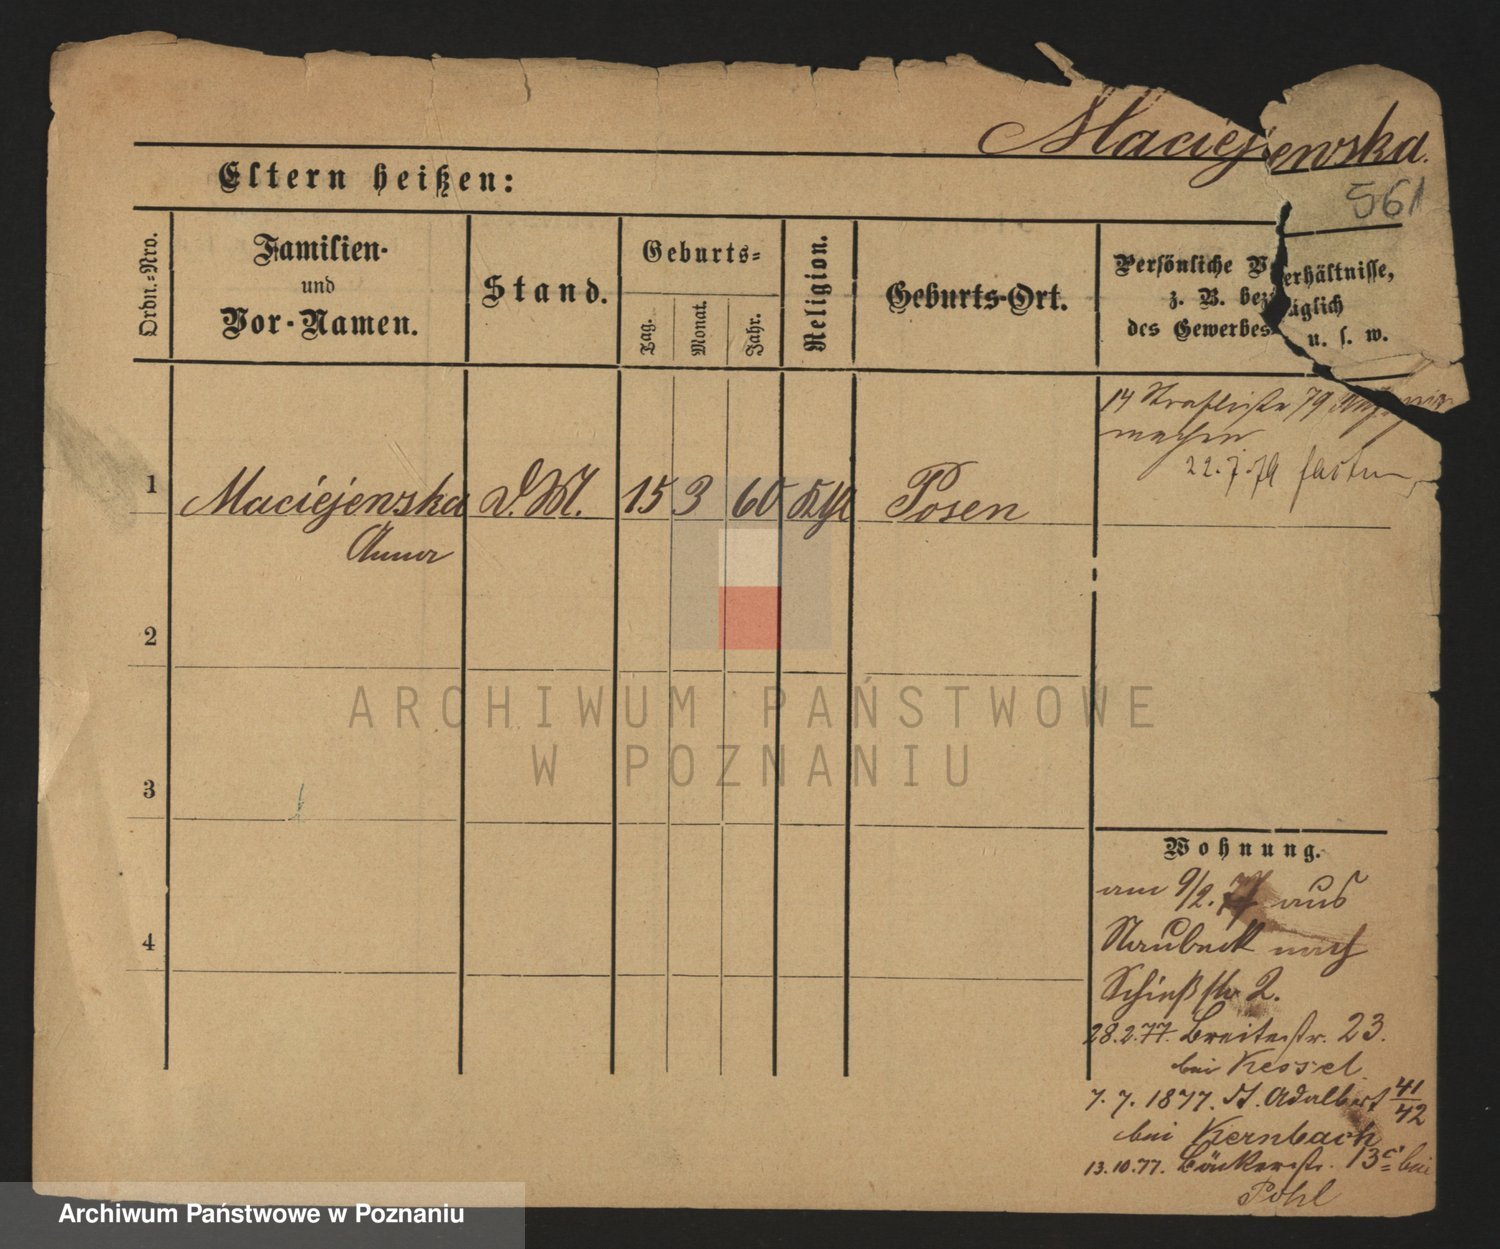 Maciejewska.
561
Eltern heißen:
Ordn.-Nro.
Familien-
und
Vor-Namen.
Stand.
Geburts-
Tag.
Monat.
Jahr.
Religion.
Geburts-Ort.
Persönliche Verhältnisse,
z. B. bezüglich
des Gewerbes u. s. w.
14 79
machen
22.7.79
1 Maciejewska D.M. 15 3 60 Kth Posen
Anna
2
3
4
ARCHIWUM PAŃSTWOWE
W POZNANIU
Wohnung.
am 9/2. 77 aus
nach
Schießstr 2.
28.2.77. Breitestr. 23.
bei Kessel.
7. 7. 1877. St. Adalbert 41/42
bei Kernbach
13.10.77. Bäckerstr. 13c bei
Pohl
Archiwum Państwowe w Poznaniu